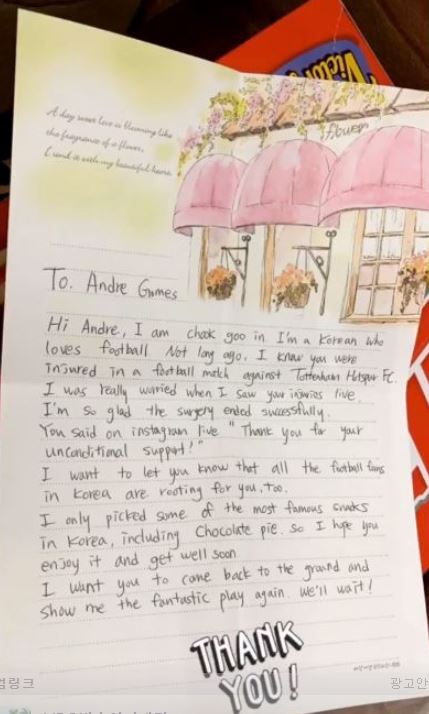 Victor
A day sweet love is blooming like
the fragrance of a flower,
I send it with my beautiful heart.
flower
To. Andre Gomes
Hi Andre, I am chook goo in I'm a Korean who
loves football. Not long ago, I know you were
injured in a football match against Tottenham Hotspur FC.
I was really worried when I saw your injuries live.
I'm so glad the surgery ended successfully.
You said on instagram live "Thank you for your
unconditional support!"
I want to let you know that all the football fans
in Korea are rooting for you, too.
I only picked some of the most famous snacks
in Korea, including Chocolate pie. so I hope you
enjoy it and get well soon
I want you to come back to the ground and
show me the fantastic play again. we'll wait!
THANK
YOU!
럼링크
광고안